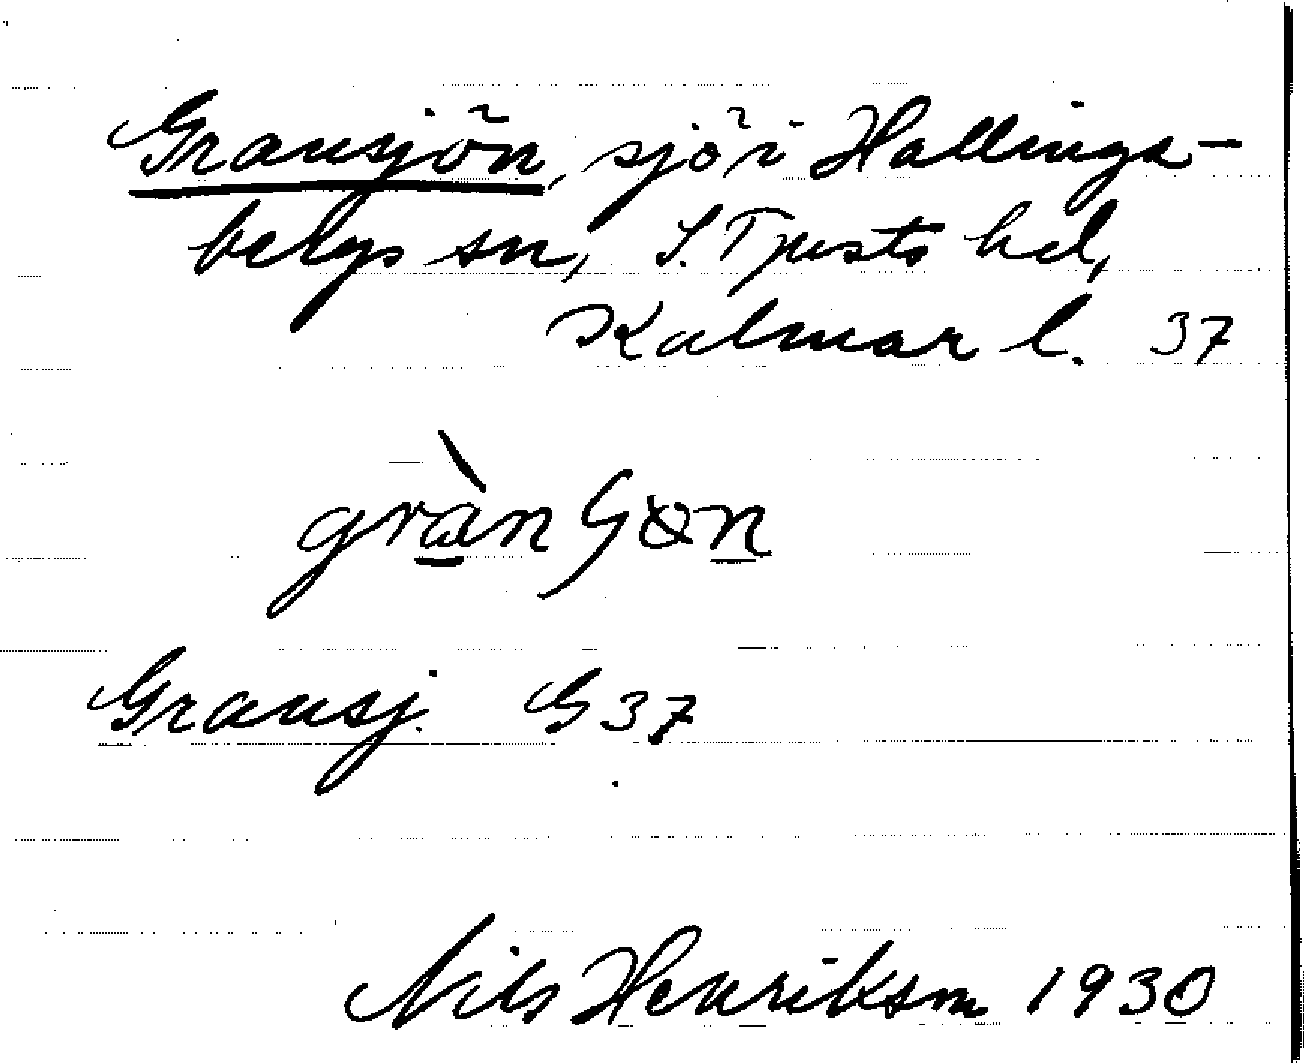 Gransjön, sjö i Hallings-
bergs sn, S. Tjusts hd,
Kalmar l. 37
grànʃøn
Gransj. G 37
Nils Henrikson 1930